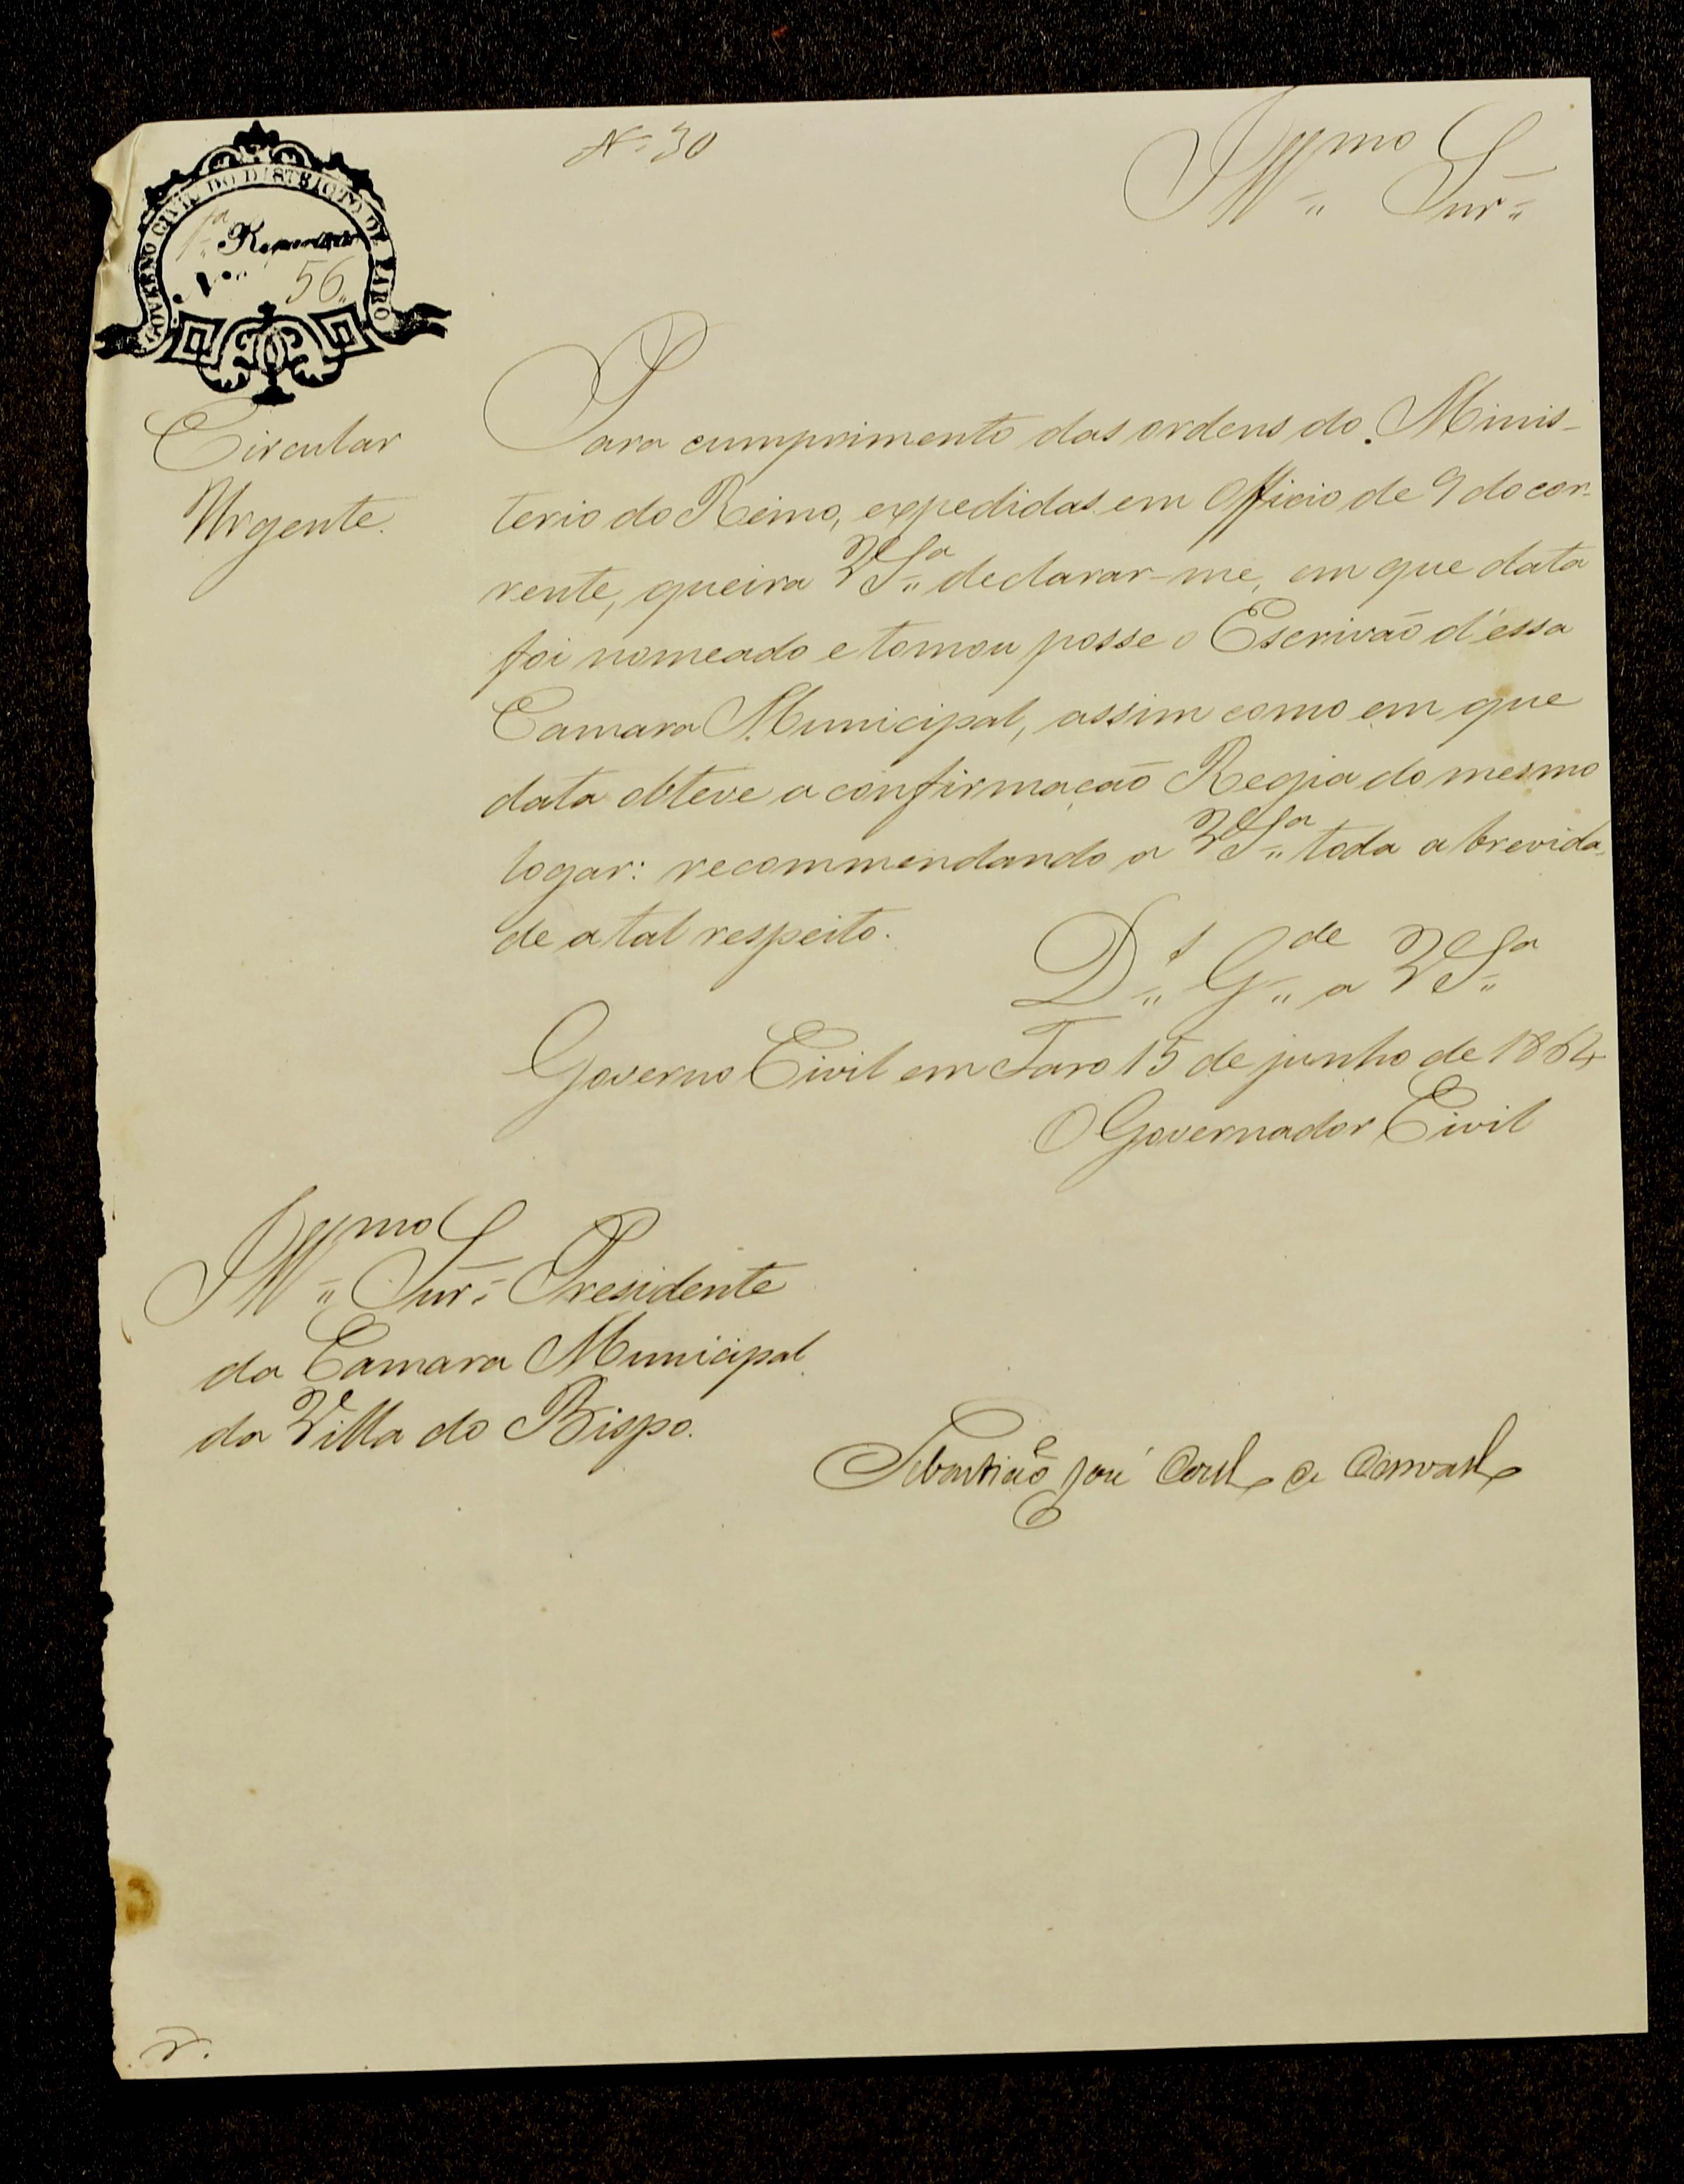 Nº 30
Illmo Snr.
GOVERNO CIVIL DO DISTRICTO DE FARO
1ª Repartição
Nº 56
Circular
Urgente.
Para cumprimento das ordens do Minis-
terio do Reino, expedidas em Officio de 9 do cor-
rente, queira VSª declarar-me, em que data
foi nomeado e tomou posse o Escrivão d'essa
Camara Municipal, assim como em que
data obteve a confirmação Regia do mesmo
logar: recommendando a VSª toda a brevida-
de a tal respeito.
Ds Gde a VSª
Governo Civil em Faro 15 de junho de 1864
O Governador Civil
Illmo Snr. Presidente
da Camara Municipal
da Villa do Bispo.
Sebastião José Coelho de Carvalho